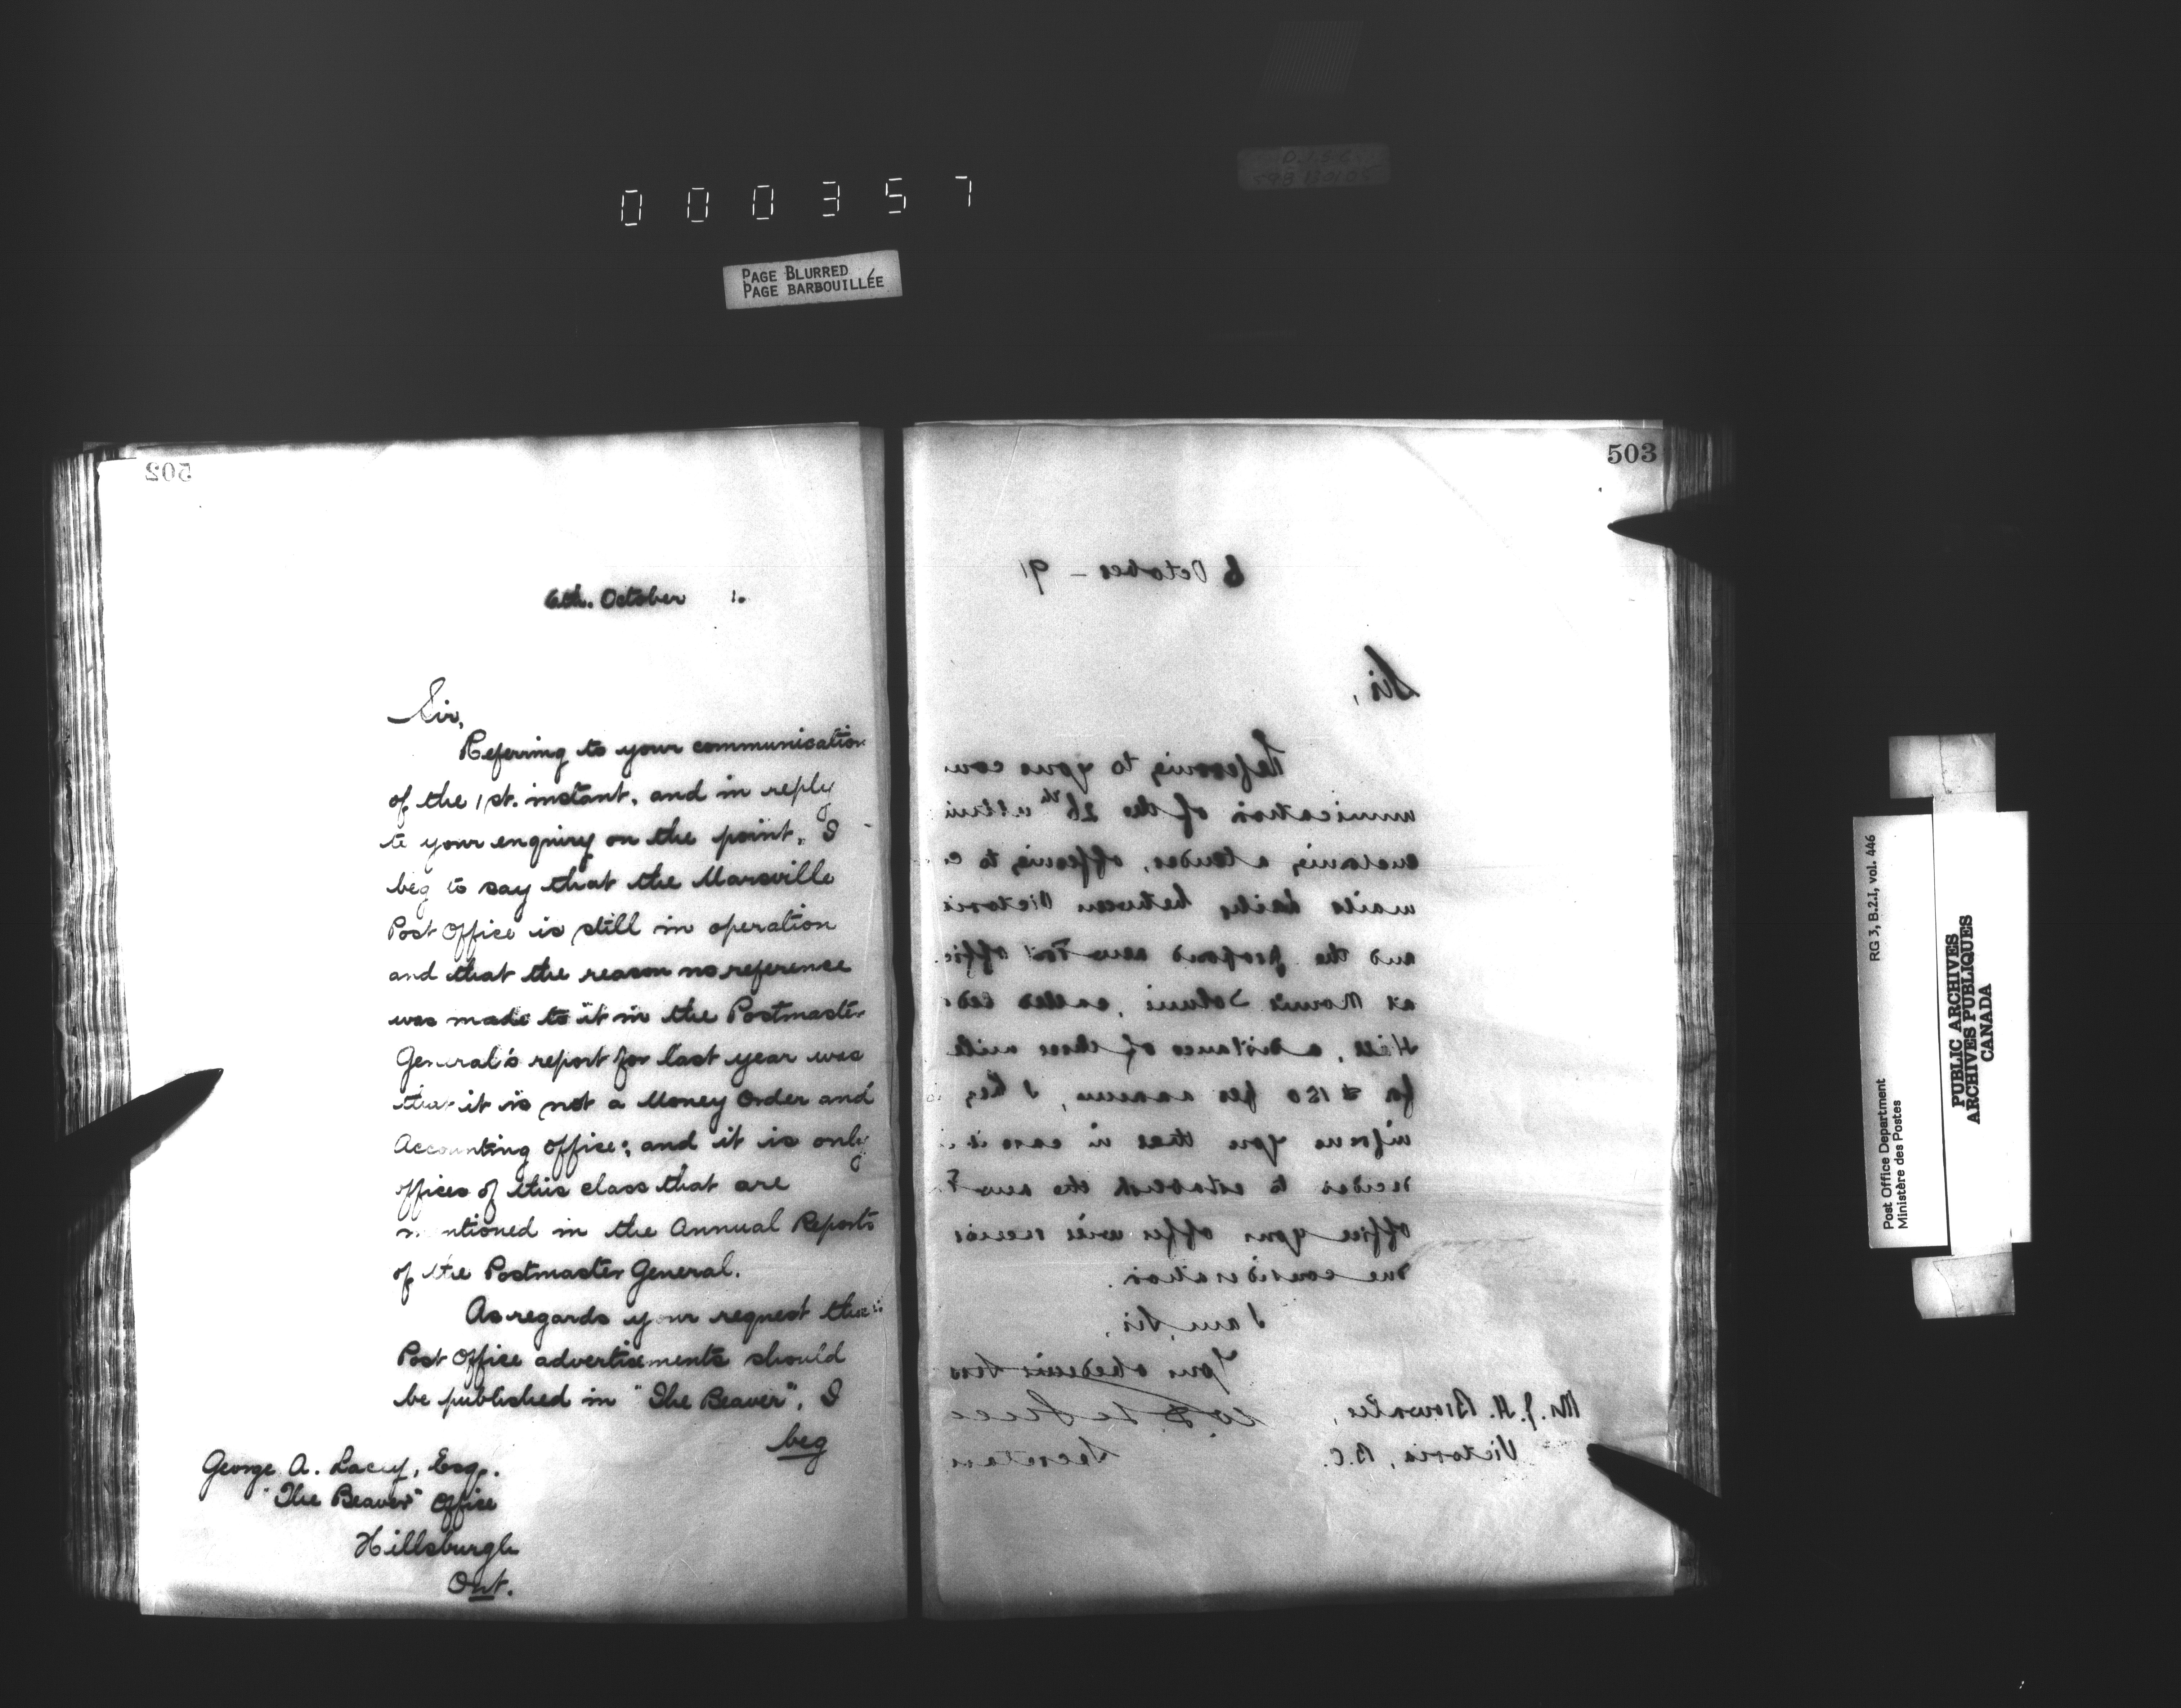 000357
PAGE BLURRED
PAGE BARBOUILLÉE
502
6th. October 1.
Sir,
Referring to your communication
of the 1st. instant, and in reply
to your enquiry on the point, I
beg to say that the Marsville
Post Office is still in operation
and that the reason no reference
was made to it in the Postmaster
General's report for last year was
that it is not a Money Order and
Accounting Office; and it is only
offices of this class that are
mentioned in the Annual Reports
of the Postmaster General.
As regards your request that
Post Office advertisements should
be published in "The Beaver", I
beg
George A. Lacey, Esq.
"The Beaver" Office
Hillsburgh
Ont.
503
6 October - 91
Sir,
Referring to your com
munication of the 26th ultimo
enclosing a tender, offering to c
mails daily between Victoria
and the proposed new Post Office
at Mount Tolmie, called Ceda
Hill, a distance of three mile
for $150 per annum, I beg
inform you that in case it i
decided to establish the new P
office your offer will receive
due consideration.
I am, Sir,
Your obedient Serv
Secretary
Mr. J. H. Brownlee,
Victoria, B.C.
RG 3, B.2.I, vol. 446
Post Office Department
Ministère des Postes
PUBLIC ARCHIVES
ARCHIVES PUBLIQUES
CANADA